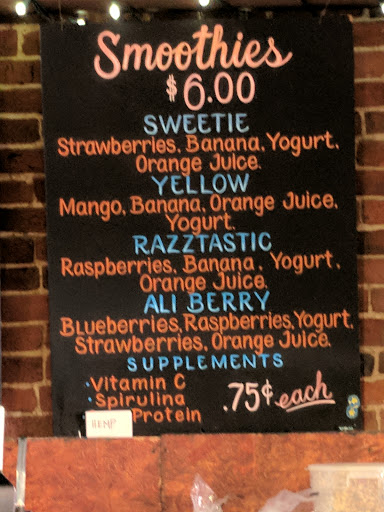 Smoothies
$6.00
SWEETIE
Strawberries, Banana, Yogurt,
Orange Juice.
YELLOW
Mango, Banana, Orange Juice,
Yogurt.
RAZZTASTIC
Raspberries, Banana, Yogurt,
Orange Juice.
ALI BERRY
Blueberries, Raspberries, Yogurt,
Strawberries, Orange Juice.
SUPPLEMENTS
·Vitamin C
·Spirulina
HEMP Protein
.75¢ each